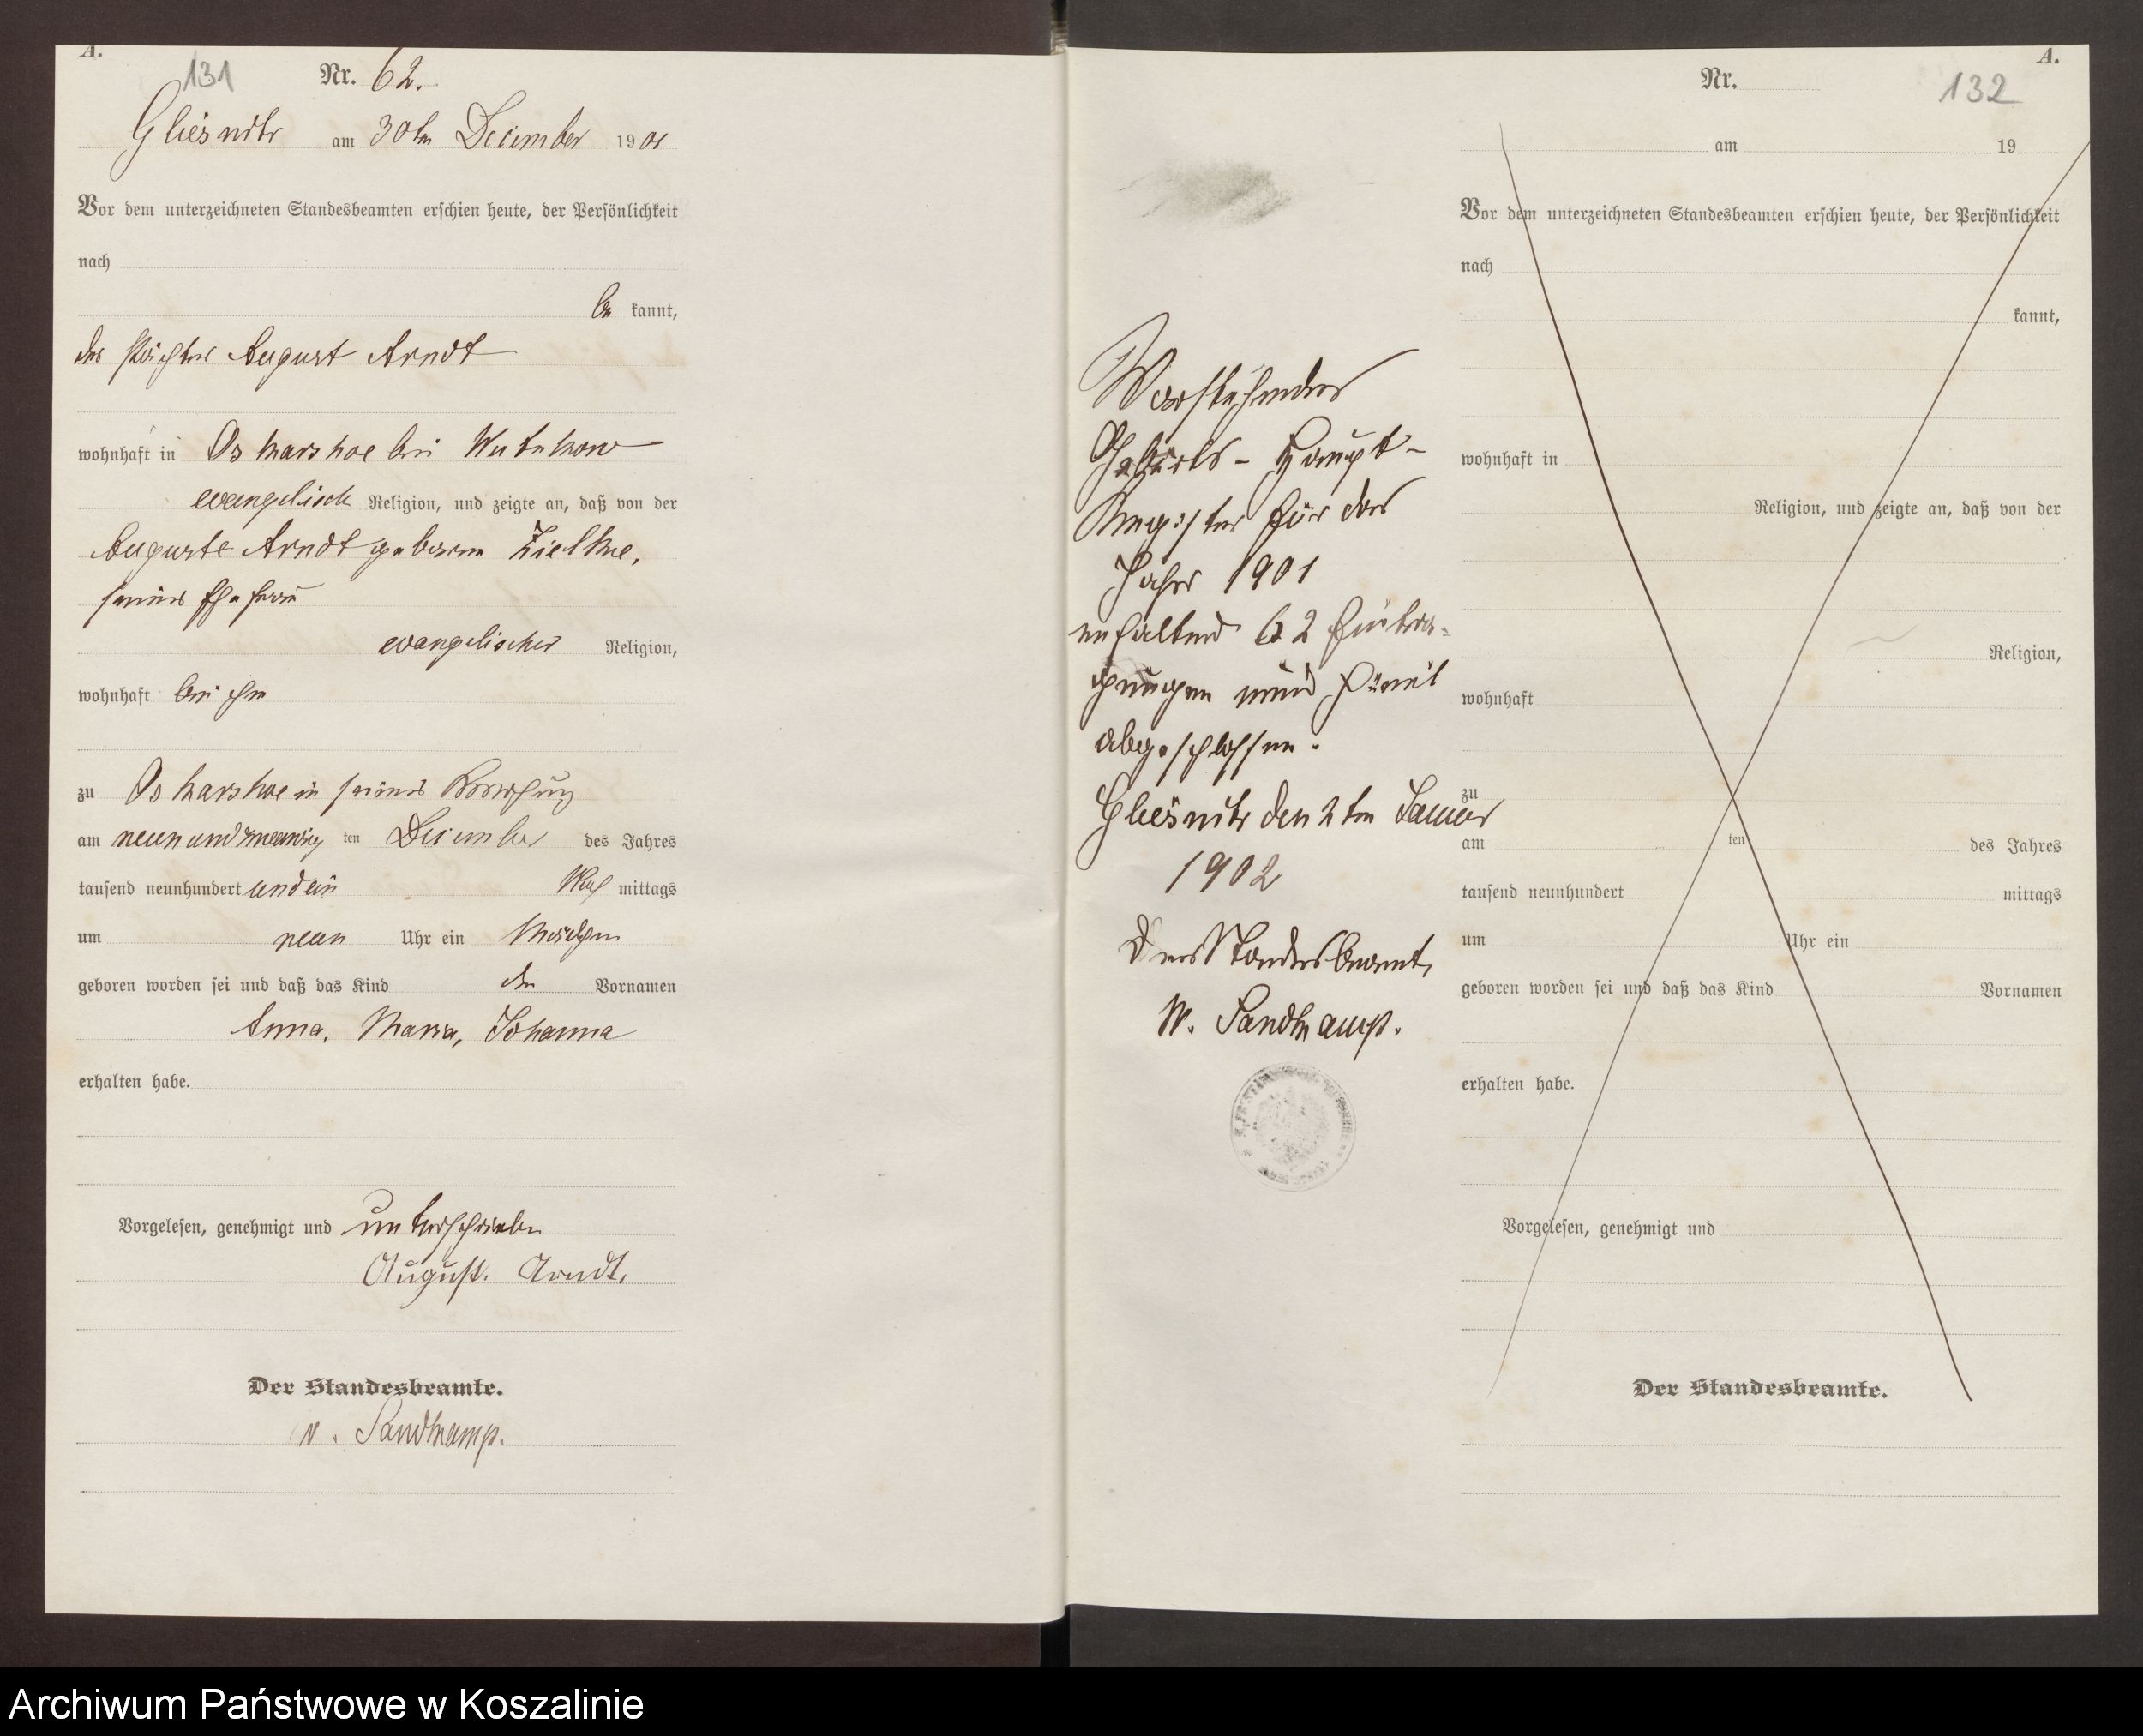 A.
131
Nr. 62.
Gliesnitz am 30ten December 1901
Vor dem unterzeichneten Standesbeamten erschien heute, der Persönlichkeit
nach
be kannt,
der Pächter August Arndt
wohnhaft in Oskarshoe bei Wutzkow
evangelisch Religion, und zeigte an, daß von der
Auguste Arndt geborene Zielke,
seiner Ehefrau
evangelischer Religion,
wohnhaft bei ihm
zu Oskarshoe in seiner Wohnung
am neunundzwanzig ten December des Jahres
tausend neunhundert undein Nach mittags
um neun Uhr ein Mädchen
geboren worden sei und daß das Kind die Vornamen
Anna, Maria, Johanna
erhalten habe.
Vorgelesen, genehmigt und unterschrieben
August. Arndt.
Der Standesbeamte.
v. Sandkamp.
Vorstehendes
Geburts-Haupt-
Register für das
Jahr 1901
enthaltend 62 Eintra-
gungen wird hiermit
abgeschlossen.
Gliesnitz den 2ten Januar
1902
Der Standesbeamte,
v. Sandkamp.
A.
Nr. 132
am 19
Vor dem unterzeichneten Standesbeamten erschien heute, der Persönlichkeit
nach
kannt,
wohnhaft in
Religion, und zeigte an, daß von der
Religion,
wohnhaft
zu
am ten des Jahres
tausend neunhundert mittags
um Uhr ein
geboren worden sei und daß das Kind Vornamen
erhalten habe.
Vorgelesen, genehmigt und
Der Standesbeamte.
Archiwum Państwowe w Koszalinie